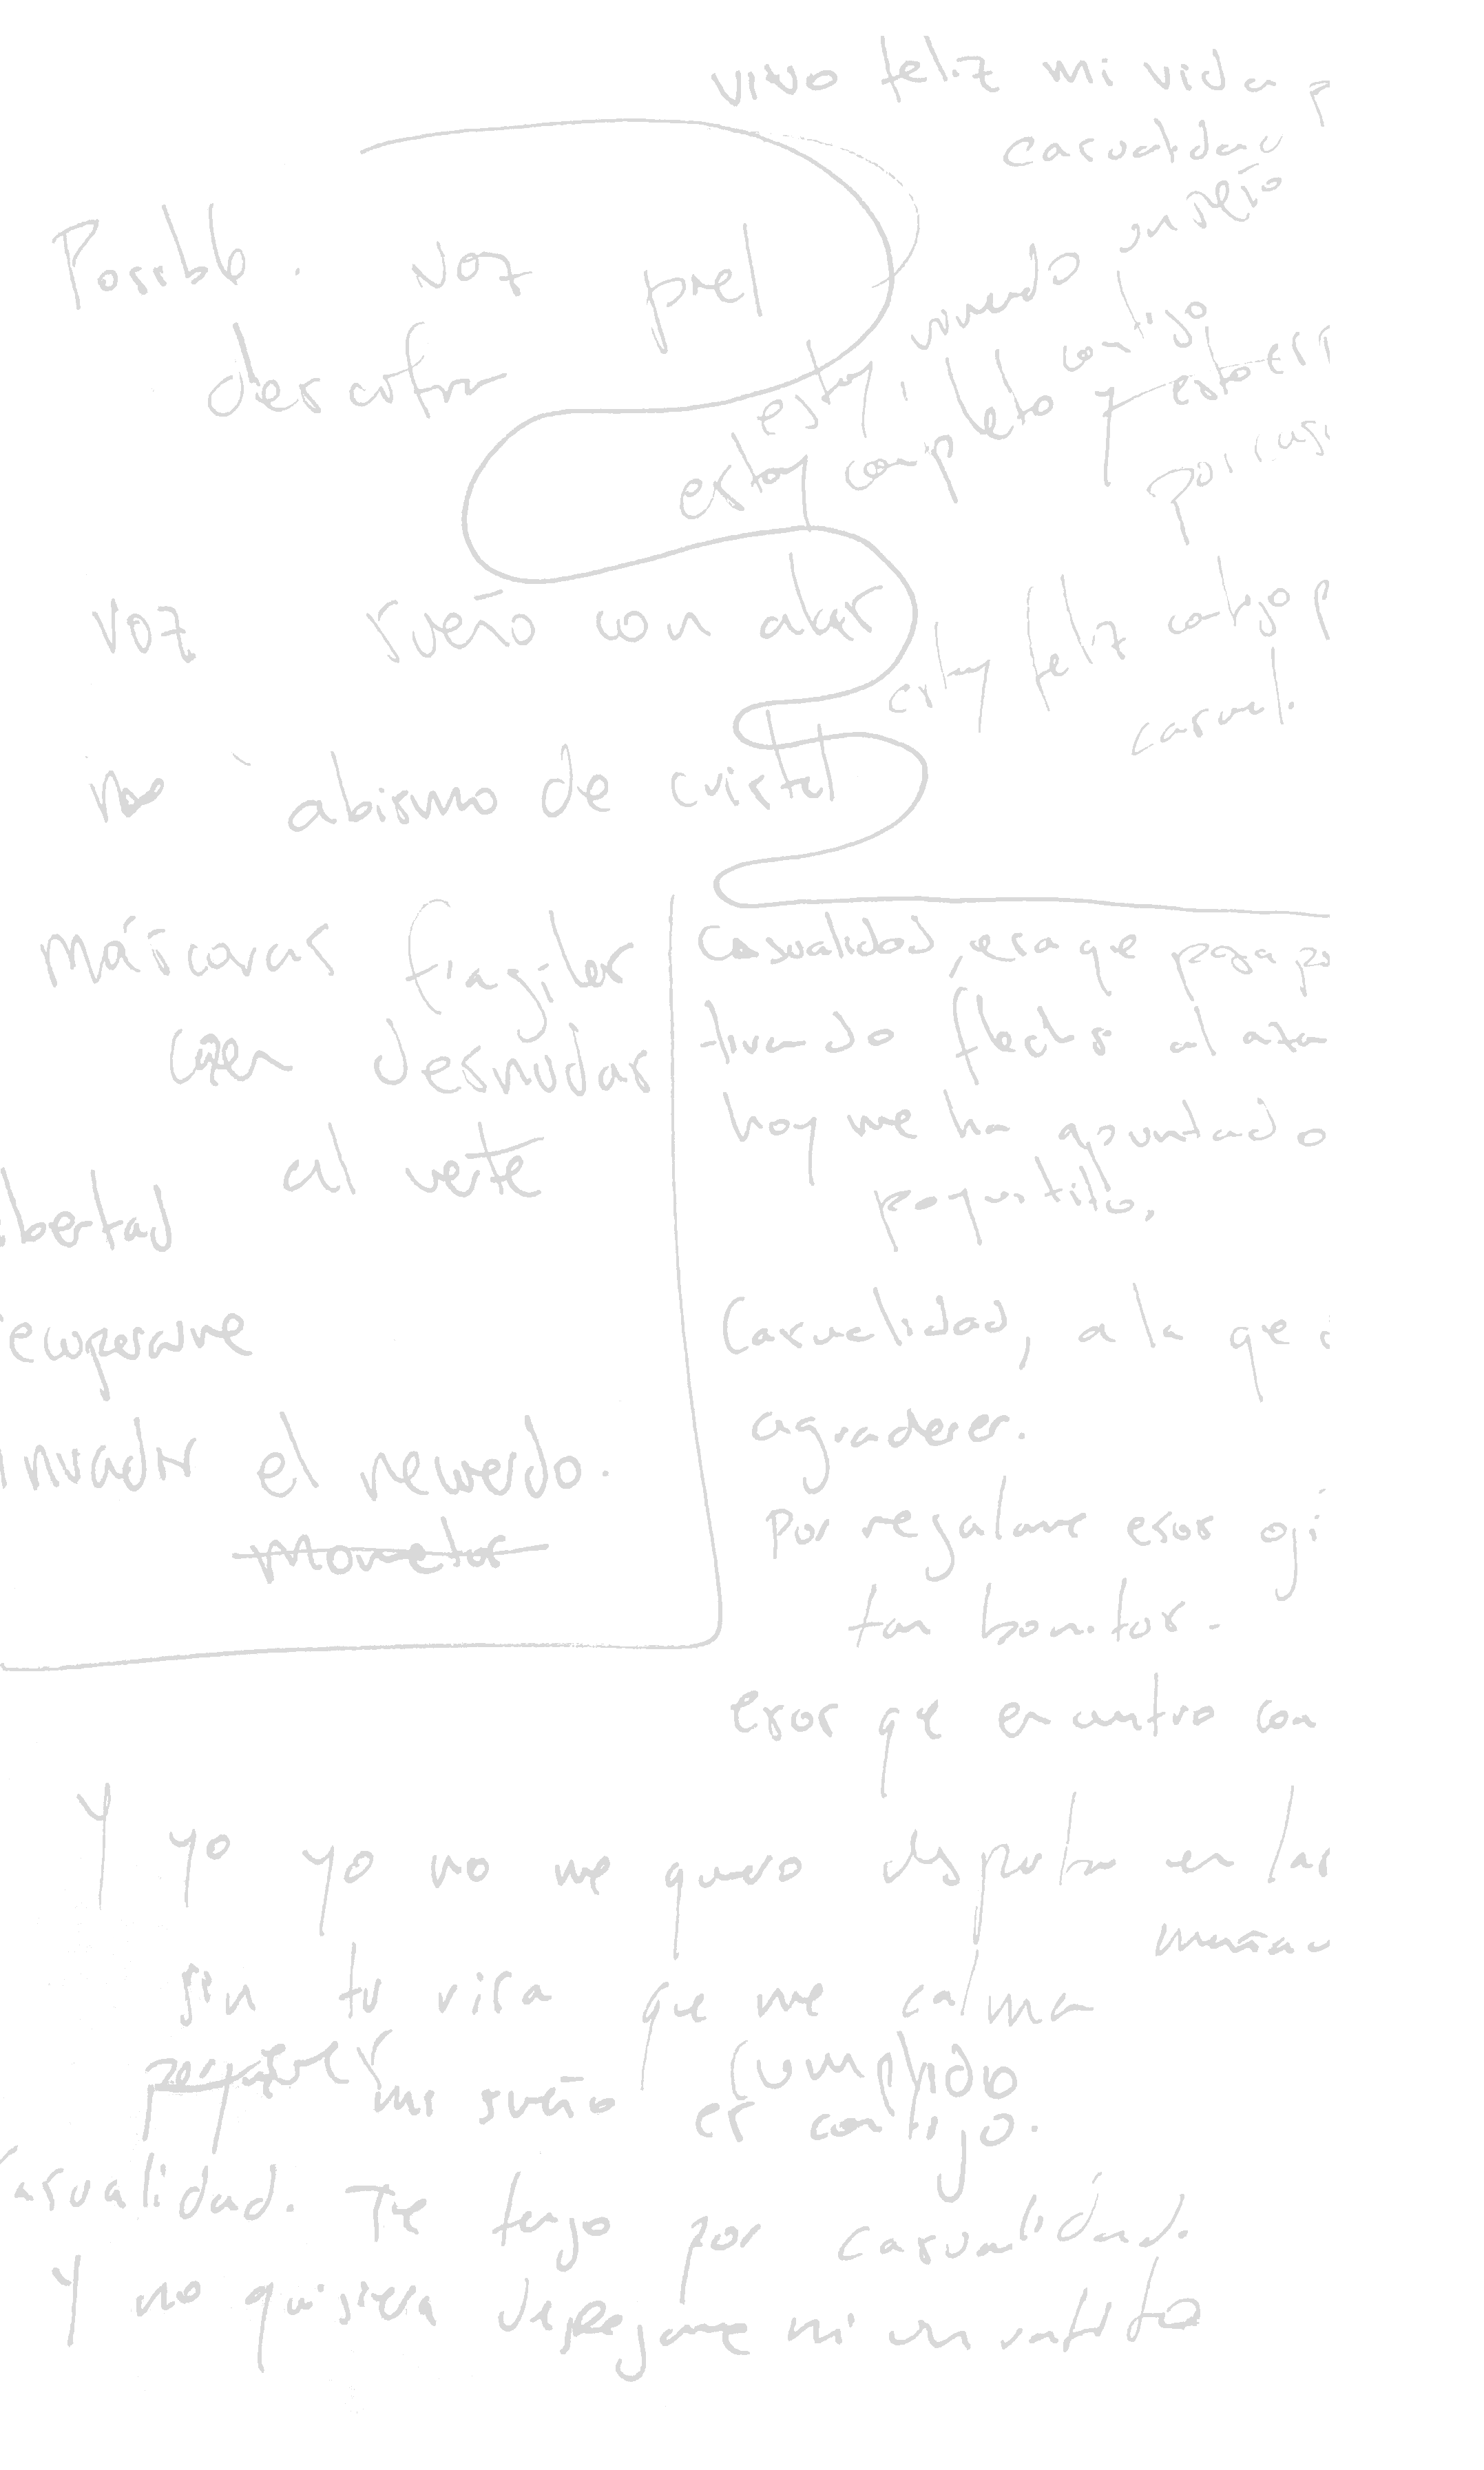 vivo feliz mi vida p
casualidad
Posible. voz piel
desafina
mundo sueño
estoy contigo
estoy completo y
por casu
voz sueño con alas
estoy feliz contigo p
casual.
no abismo de cristal
máscaras frágiles
caen desnudas
al verte
bertad
ecuperarme
el recuerdo.
Casualidad, esa que pasa
tirando flechas al aza
hoy me ha apuntado
poquitillo,
Casualidad, a la que
agradecer.
por regalarme esos oji
tan bonitos.
esos que encuentro con
Y yo yo no me quiero despertar en las
mañan
sin tu risa que me calma
mi sueño cumplido
es contigo.
asualidad. Te tengo por casualidad.
Y no quisiera despegarme ni un